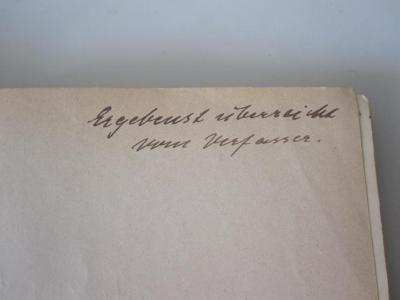 Ergebenst überreicht
vom Verfasser.